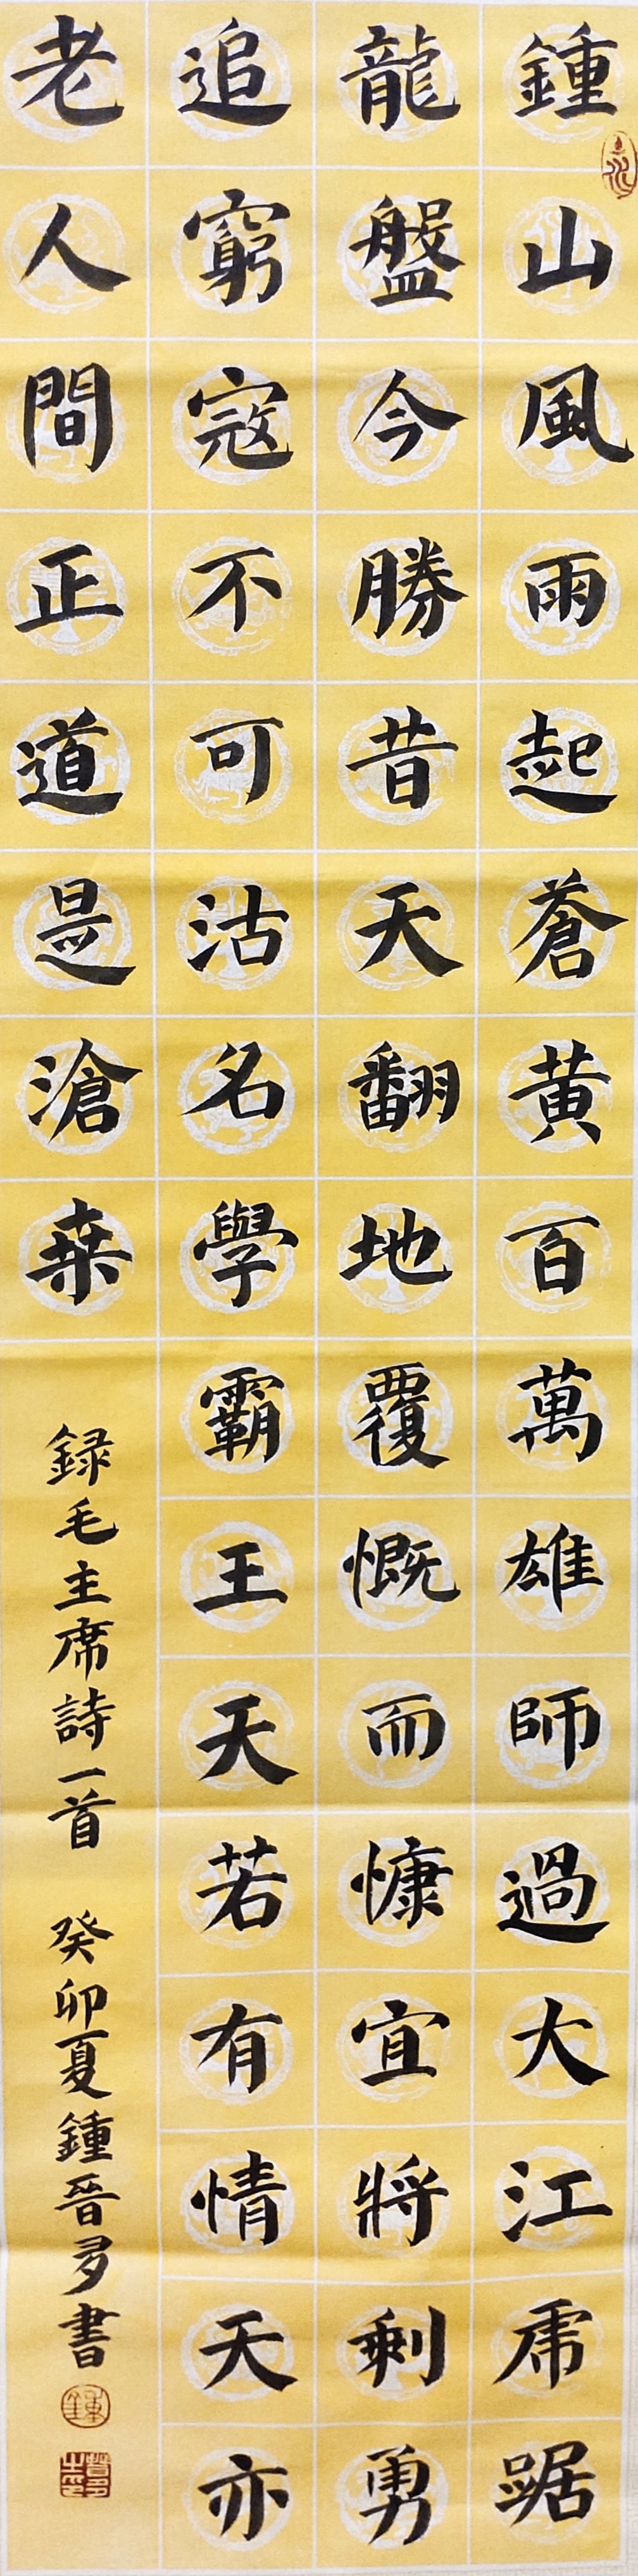 鍾山風雨起蒼黃百萬雄師過大江虎踞
龍盤今勝昔天翻地覆慨而慷宜將剩勇
追窮寇不可沽名學霸王天若有情天亦
老人間正道是滄桒
録毛主席詩一首 癸卯夏鍾晉多書